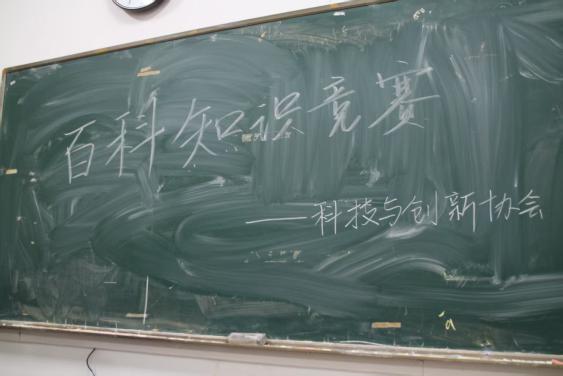 百科知识竞赛
——科技与创新协会